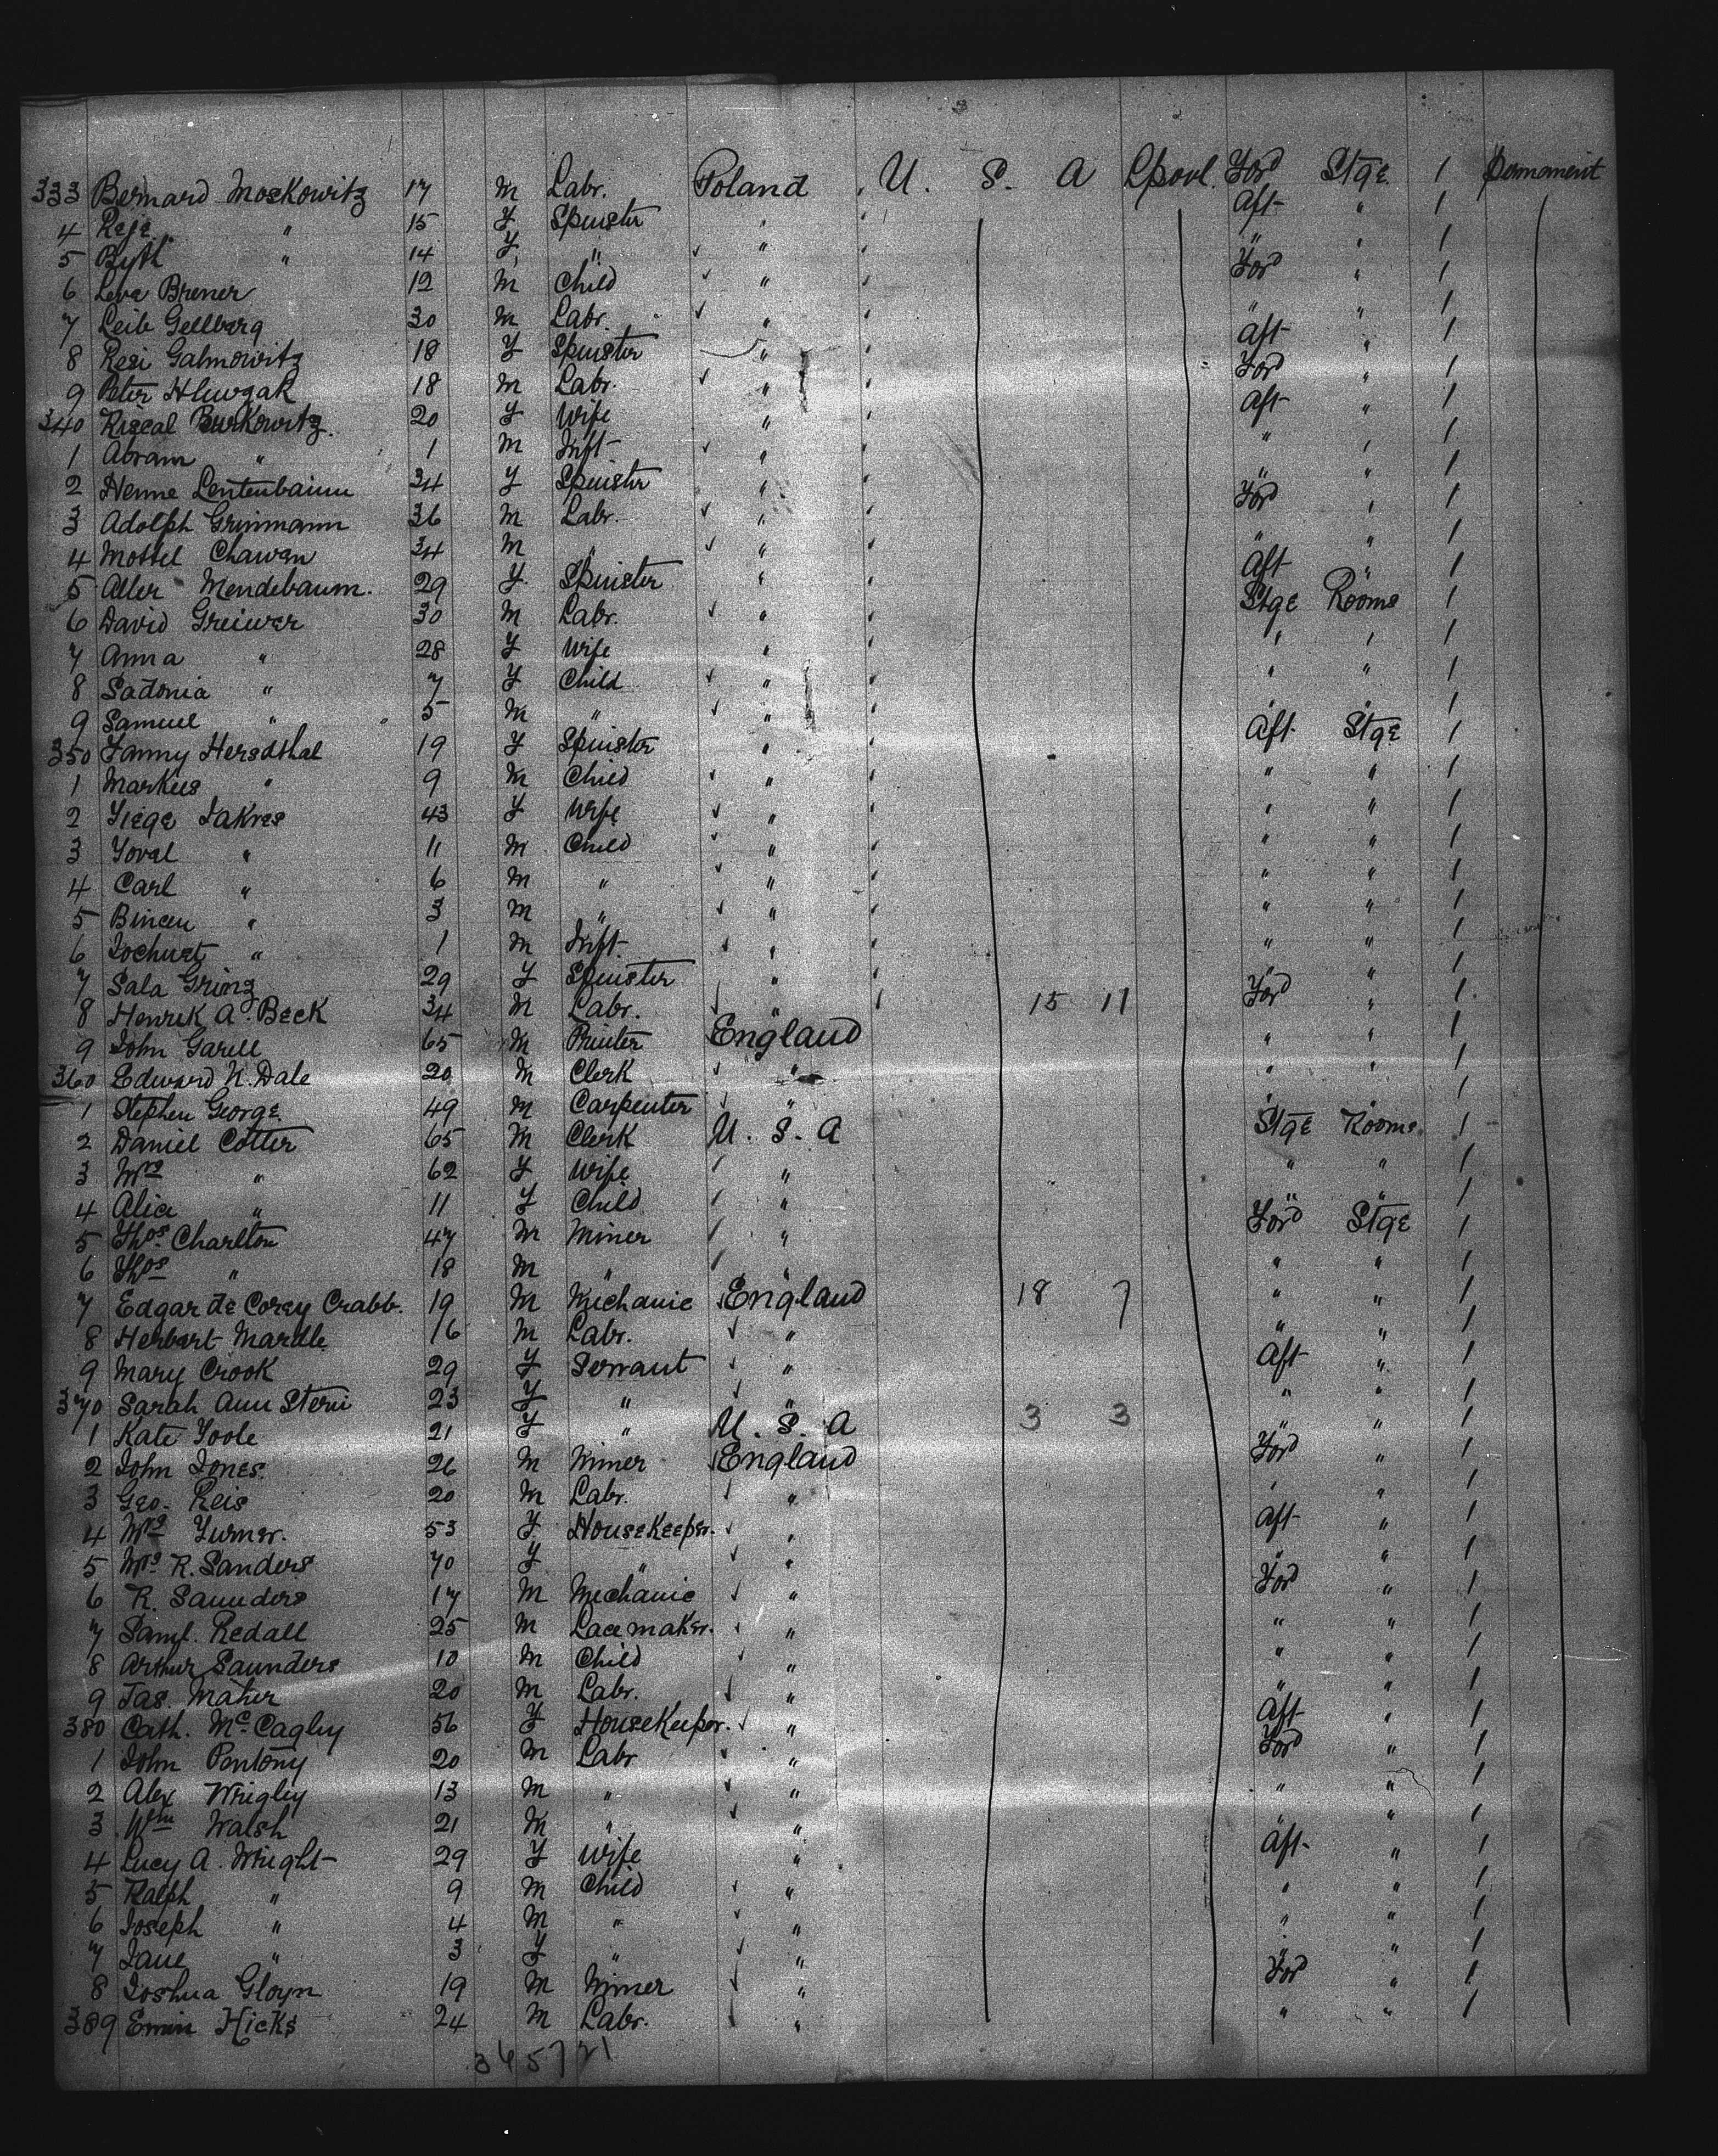 333 Bernard Moskowitz 17 M Labr. Poland U. S. A Lpool. Ford Stge 1 Permanent
4 Reje " 15 F Spinster " Aft " 1
5 " 14 F " " " " 1
6 Leva Brener 12 M Child " Ford " 1
7 Leib Gellberg 30 M Labr. " " " 1
8 Resi Galmowitz 18 F Spinster " Aft " 1
9 Peter 18 M Labr. " Ford " 1
340 Burkowitz 20 F Wife " Aft " 1
1 Abram " 1 M Inft " " " 1
2 Henne Lentenbaum 34 F Spinster " " " 1
3 Adolph Grinmann 36 M Labr. " Ford " 1
4 Mottel Chawen 34 M " " " " 1
5 Aller Mendebaum. 29 F Spinster " Aft " 1
6 David Greiwer 30 M Labr. " Stge Rooms 1
7 Anna " 28 F Wife " " " 1
8 Sadonia " 7 F Child " " " 1
9 Samuel " 5 M " " " " 1
350 Fanny Hersdthal 19 F Spinster " Aft. Stge 1
1 Markus " 9 M Child " " " 1
2 Fiege Jakres 43 F Wife " " " 1
3 Yoval " 11 M Child " " " 1
4 Carl " 6 M " " " " 1
5 " 3 M " " " " 1
6 " 1 M Inft. " " " 1
7 Sala Gring 29 F Spinster " " " 1
8 Henrik A. Beck 34 M Labr. " 15 11 Ford " 1
9 John Garell 65 M Printer England " " 1
360 Edward N. Dale 20 M Clerk " " " 1
1 Stephen George 49 M Carpenter " " " 1
2 Daniel Cotter 65 M Clerk U. S. A Stge Rooms 1
3 Mrs " 62 F Wife " " " 1
4 Alice " 11 F Child " " " 1
5 Thos Charlton 47 M Miner " Ford Stge 1
6 Thos " 18 M " " " " 1
7 Edgar de Corey Crabb. 19 M Mechanic England 18 7 " " 1
8 Herbert Mardle 16 M Labr. " " " 1
9 Mary Crook 29 F Servant " Aft " 1
370 Sarah Ann Stern 23 F " " " " 1
1 Kate Foole 21 F " U. S. A 3 3 " " 1
2 John Jones. 26 M Miner England Ford " 1
3 Geo. Reis 20 M Labr. " " " 1
4 Mrs Turner. 53 F Housekeeper. " Aft " 1
5 Mrs R. Sanders 70 F " " " " 1
6 R. Saunders 17 M Mechanic " Ford " 1
7 Saml. Redall 25 M Lacemaker. " " " 1
8 Arthur Saunders 10 M Child " " " 1
9 Jas. Maher 20 M Labr. " " " 1
380 Cath. McCagley 56 F Housekeeper. " Aft " 1
1 John Pentony 20 M Labr " Ford " 1
2 Alex Wrigley 13 M " " " " 1
3 Wm Walsh 21 M " " " " 1
4 Lucy A. Wright 29 F Wife " Aft " 1
5 Ralph " 9 M Child " " " 1
6 Joseph " 4 M " " " " 1
7 Jane " 3 F " " " " 1
8 Joshua Gloyn 19 M Miner " Ford " 1
389 Hicks 24 M Labr. " " " 1